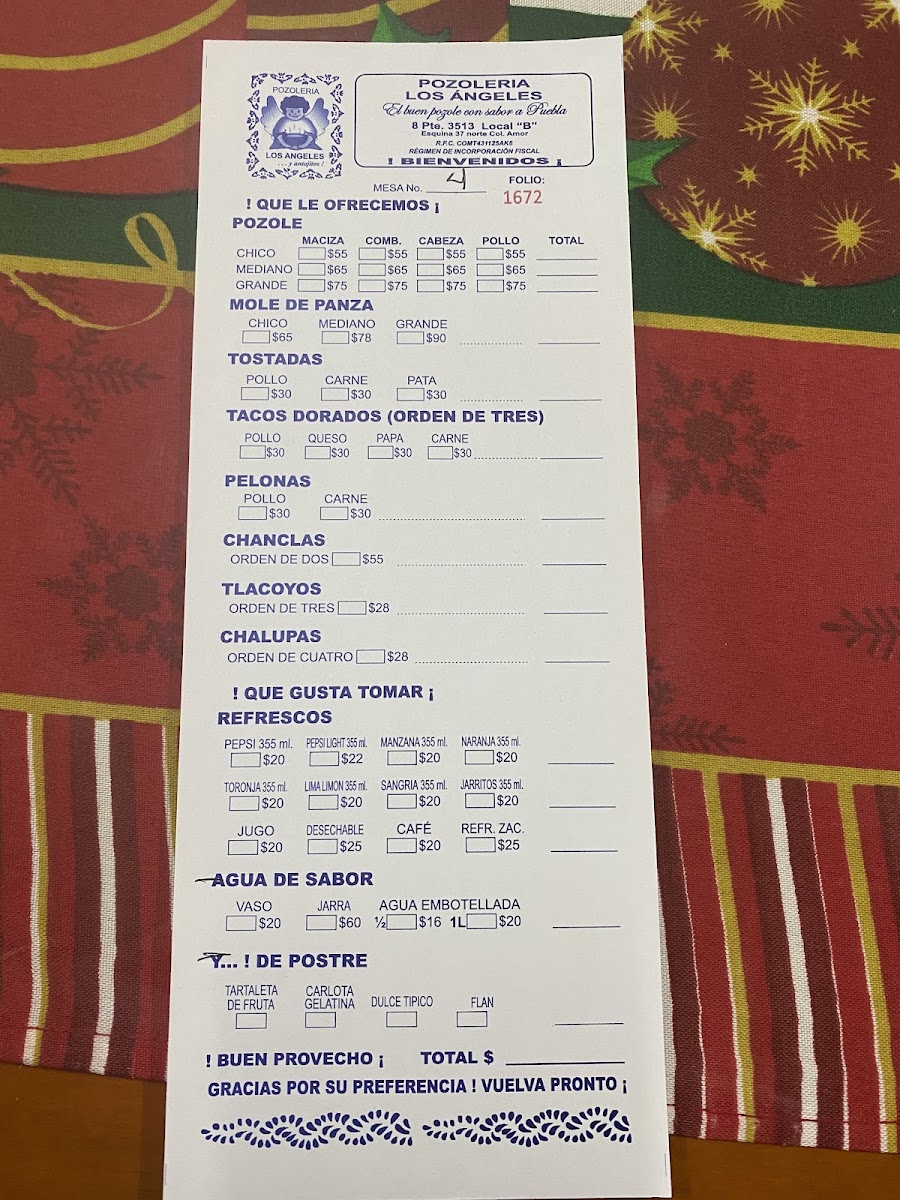 POZOLERIA
LOS ANGELES
... y antojitos !
POZOLERIA
LOS ÁNGELES
El buen pozole con sabor a Puebla
8 Pte. 3513 Local "B"
Esquina 37 norte Col. Amor
R.F.C. COMT431125AK6
RÉGIMEN DE INCORPORACIÓN FISCAL
! BIENVENIDOS ¡
MESA No. 4 FOLIO:
1672
! QUE LE OFRECEMOS ¡
POZOLE
MACIZA COMB. CABEZA POLLO TOTAL
CHICO $55 $55 $55 $55
MEDIANO $65 $65 $65 $65
GRANDE $75 $75 $75 $75
MOLE DE PANZA
CHICO MEDIANO GRANDE
$65 $78 $90
TOSTADAS
POLLO CARNE PATA
$30 $30 $30
TACOS DORADOS (ORDEN DE TRES)
POLLO QUESO PAPA CARNE
$30 $30 $30 $30
PELONAS
POLLO CARNE
$30 $30
CHANCLAS
ORDEN DE DOS $55
TLACOYOS
ORDEN DE TRES $28
CHALUPAS
ORDEN DE CUATRO $28
! QUE GUSTA TOMAR ¡
REFRESCOS
PEPSI 355 ml. PEPSI LIGHT 355 ml. MANZANA 355 ml. NARANJA 355 ml.
$20 $22 $20 $20
TORONJA 355 ml. LIMA LIMON 355 ml. SANGRIA 355 ml. JARRITOS 355 ml.
$20 $20 $20 $20
JUGO DESECHABLE CAFÉ REFR. ZAC.
$20 $25 $20 $25
AGUA DE SABOR
VASO JARRA AGUA EMBOTELLADA
$20 $60 ½ $16 1L $20
Y... ! DE POSTRE
TARTALETA CARLOTA
DE FRUTA GELATINA DULCE TIPICO FLAN
! BUEN PROVECHO ¡ TOTAL $
GRACIAS POR SU PREFERENCIA ! VUELVA PRONTO ¡